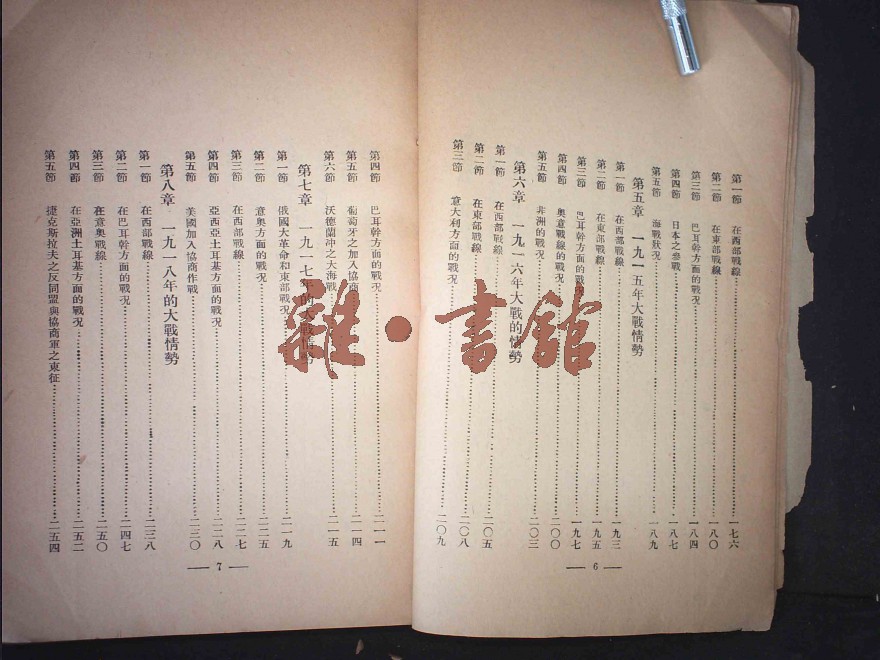 第一節 在西部戰線 一七六
第二節 在東部戰線 一八〇
第三節 巴耳幹方面的戰況 一八四
第四節 日本之參戰 一八七
第五節 海戰狀况 一八九
第五章 一九一五年大戰情勢
第一節 在西部戰線 一九三
第二節 在東部戰線 一九五
第三節 巴耳幹方面的戰况 一九七
第四節 奧意戰線的戰况 二〇〇
第五節 非洲的戰况 二〇三
第六章 一九一六年大戰的情勢
第一節 在西部戰線 二〇五
第二節 在東部戰線 二〇八
第三節 意大利方面的戰况 二〇九
— 6 —
第四節 巴耳幹方面的戰况 二一一
第五節 葡萄牙之加入協商 二一四
第六節 沃德蘭冲之大海戰 二一五
第七章 一九一七年的大戰情勢
第一節 俄國大革命和東部戰 二一九
第二節 意奧方面的戰况 二二五
第三節 在西部戰線 二二七
第四節 亞西亞土耳基方面的戰况 二二八
第五節 美國加入協商作戰 二三〇
第八章 一九一八年的大戰情勢
第一節 在西部戰線 二三八
第二節 在巴耳幹方面的戰况 二四七
第三節 在意奧戰線 二五〇
第四節 在亞洲土耳基方面的戰况 二五二
第五節 捷克斯拉夫之反同盟與協商軍之東征 二五四
— 7 —
雜·書館